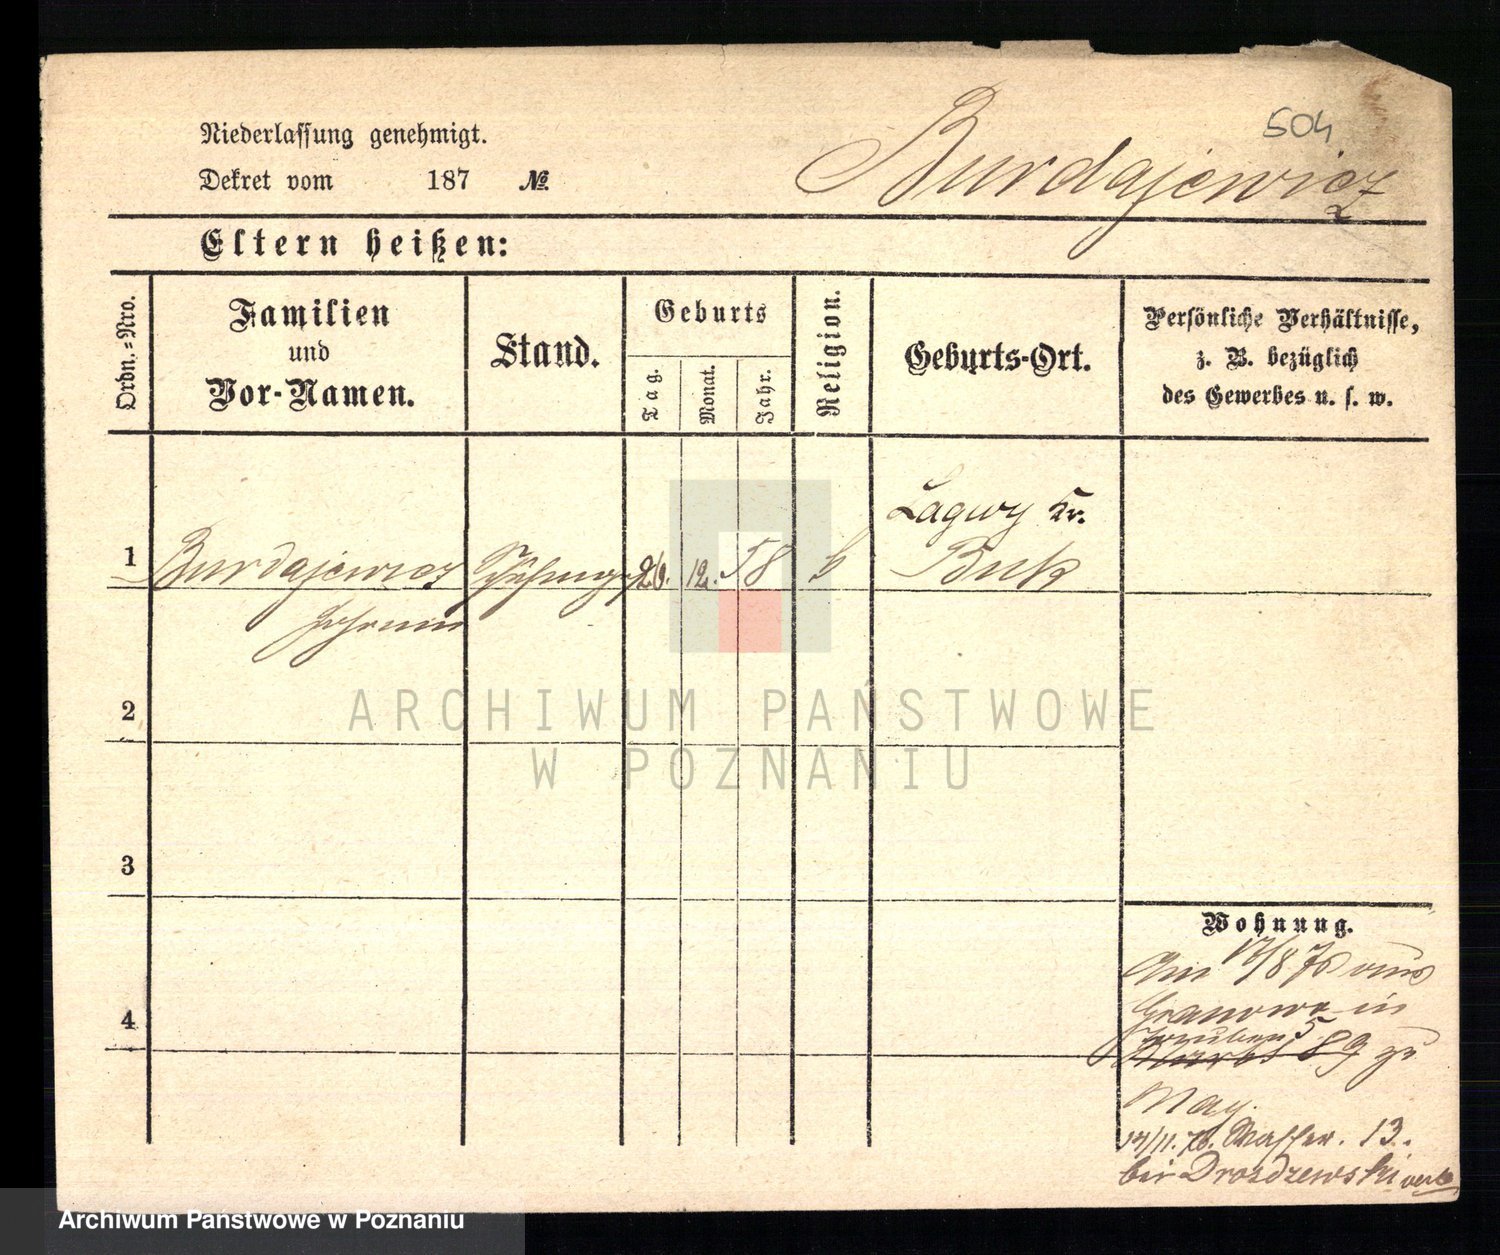 504
Niederlassung genehmigt.
Dekret vom 187 №
Burdajewicz
Eltern heißen:
Ordn.=Nro.
Familien
und
Vor-Namen.
Stand.
Geburts
Tag.
Monat.
Jahr.
Religion.
Geburts-Ort.
Persönliche Verhältnisse,
z. B. bezüglich
des Gewerbes u. s. w.
Lagwy Kr.
1 Burdajewicz 26. 12. 58 Buk
2
3
4
Wohnung.
Am 17/8 76 aus
Granowo in
89 zu
May.
Wasser. 13.
bei Drozdzewski
ARCHIWUM PAŃSTWOWE
W POZNANIU
Archiwum Państwowe w Poznaniu